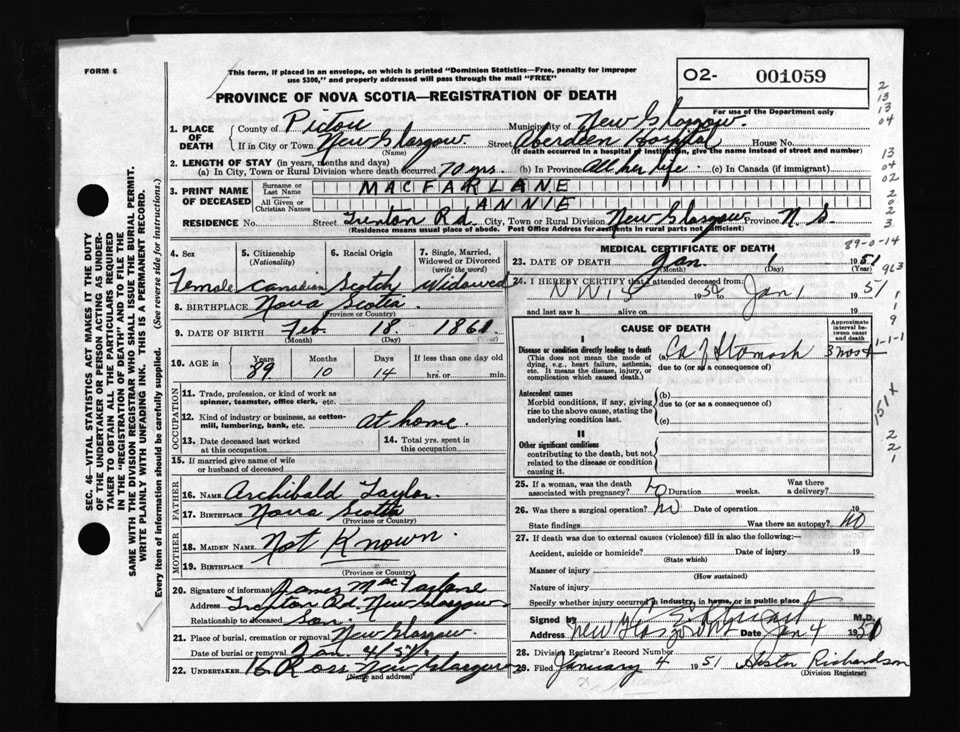 FORM 6
This form, if placed in an envelope, on which is printed "Dominion Statistics—Free, penalty for improper
use $300," and properly addressed will pass through the mail "FREE"
O2- 001059
PROVINCE OF NOVA SCOTIA—REGISTRATION OF DEATH
For use of the Department only
1. PLACE OF DEATH County of Pictou Municipality of New Glasgow.
If in City or Town New Glasgow. (Name) Street Aberdeen Hospital House No.
(If death occurred in a hospital or institution, give the name instead of street and number)
2. LENGTH OF STAY (in years, months and days)
(a) In City, Town or Rural Division where death occurred 70 yrs. (b) In Province All her life (c) In Canada (if immigrant)
3. PRINT NAME OF DECEASED Surname or Last Name MACFARLANE
All Given or Christian Names ANNIE
RESIDENCE No. Street Trenton Rd. City, Town or Rural Division New Glasgow Province N. S.
(Residence means usual place of abode. Post Office Address for residents in rural parts not sufficient)
SEC. 46—VITAL STATISTICS ACT MAKES IT THE DUTY
OF THE UNDERTAKER OR PERSON ACTING AS UNDER-
TAKER TO OBTAIN ALL THE PARTICULARS REQUIRED
IN THE "REGISTRATION OF DEATH" AND TO FILE THE
SAME WITH THE DIVISION REGISTRAR WHO SHALL ISSUE THE BURIAL PERMIT.
WRITE PLAINLY WITH UNFADING INK. THIS IS A PERMANENT RECORD.
Every item of information should be carefully supplied. (See reverse side for instructions.)
4. Sex Female
5. Citizenship (Nationality) Canadian
6. Racial Origin Scotch
7. Single, Married, Widowed or Divorced (write the word) Widowed
8. BIRTHPLACE Nova Scotia
(Province or Country)
9. DATE OF BIRTH Feb. 18. 1861
(Month) (Day) (Year)
10. AGE in Years 89 Months 10 Days 14 If less than one day old
hrs. or min.
OCCUPATION
11. Trade, profession, or kind of work as
spinner, teamster, office clerk, etc.
12. Kind of industry or business, as cotton-
mill, lumbering, bank, etc. at home.
13. Date deceased last worked
at this occupation
14. Total yrs. spent in
this occupation
15. If married give name of wife
or husband of deceased
FATHER
16. NAME Archibald Taylor
17. BIRTHPLACE Nova Scotia
(Province or Country)
MOTHER
18. MAIDEN NAME Not Known.
19. BIRTHPLACE
(Province or Country)
20. Signature of informant James MacFarlane
Address Trenton Rd. New Glasgow
Relationship to deceased Son.
21. Place of burial, cremation or removal New Glasgow.
Date of burial or removal Jan. 4/51.
22. UNDERTAKER Ross New Glasgow
(Name and address)
MEDICAL CERTIFICATE OF DEATH
23. DATE OF DEATH Jan. 1 1951
(Month) (Day) (Year)
24. I HEREBY CERTIFY that I attended deceased from:
1950 to Jan 1 1951
and last saw h alive on 19
CAUSE OF DEATH
Approximate interval between onset and death
I
Disease or condition directly leading to death
(This does not mean the mode of
dying, e.g., heart failure, asthenia,
etc. It means the disease, injury, or
complication which caused death.)
(a) Ca of Stomach 3 mos +
due to (or as a consequence of)
Antecedent causes
Morbid conditions, if any, giving
rise to the above cause, stating the
underlying condition last.
(b)
due to (or as a consequence of)
(c)
II
Other significant conditions
contributing to the death, but not
related to the disease or condition
causing it.
25. If a woman, was the death
associated with pregnancy? Duration weeks. Was there
a delivery?
26. Was there a surgical operation? no Date of operation 19
State findings Was there an autopsy? no
27. If death was due to external causes (violence) fill in also the following:—
Accident, suicide or homicide? Date of injury 19
(State which)
Manner of injury
(How sustained)
Nature of injury
Specify whether injury occurred in industry, in home, or in public place
Signed by M.D.
Address New Glasgow NS Date Jan 4 1951
28. Division Registrar's Record Number
29. Filed January 4 1951 Richardson
(Division Registrar)
2
13
13
04
13
04
02
2
0
2
3
89-0-14
963
1
1
9
1-1-1
151 X
2
2
1